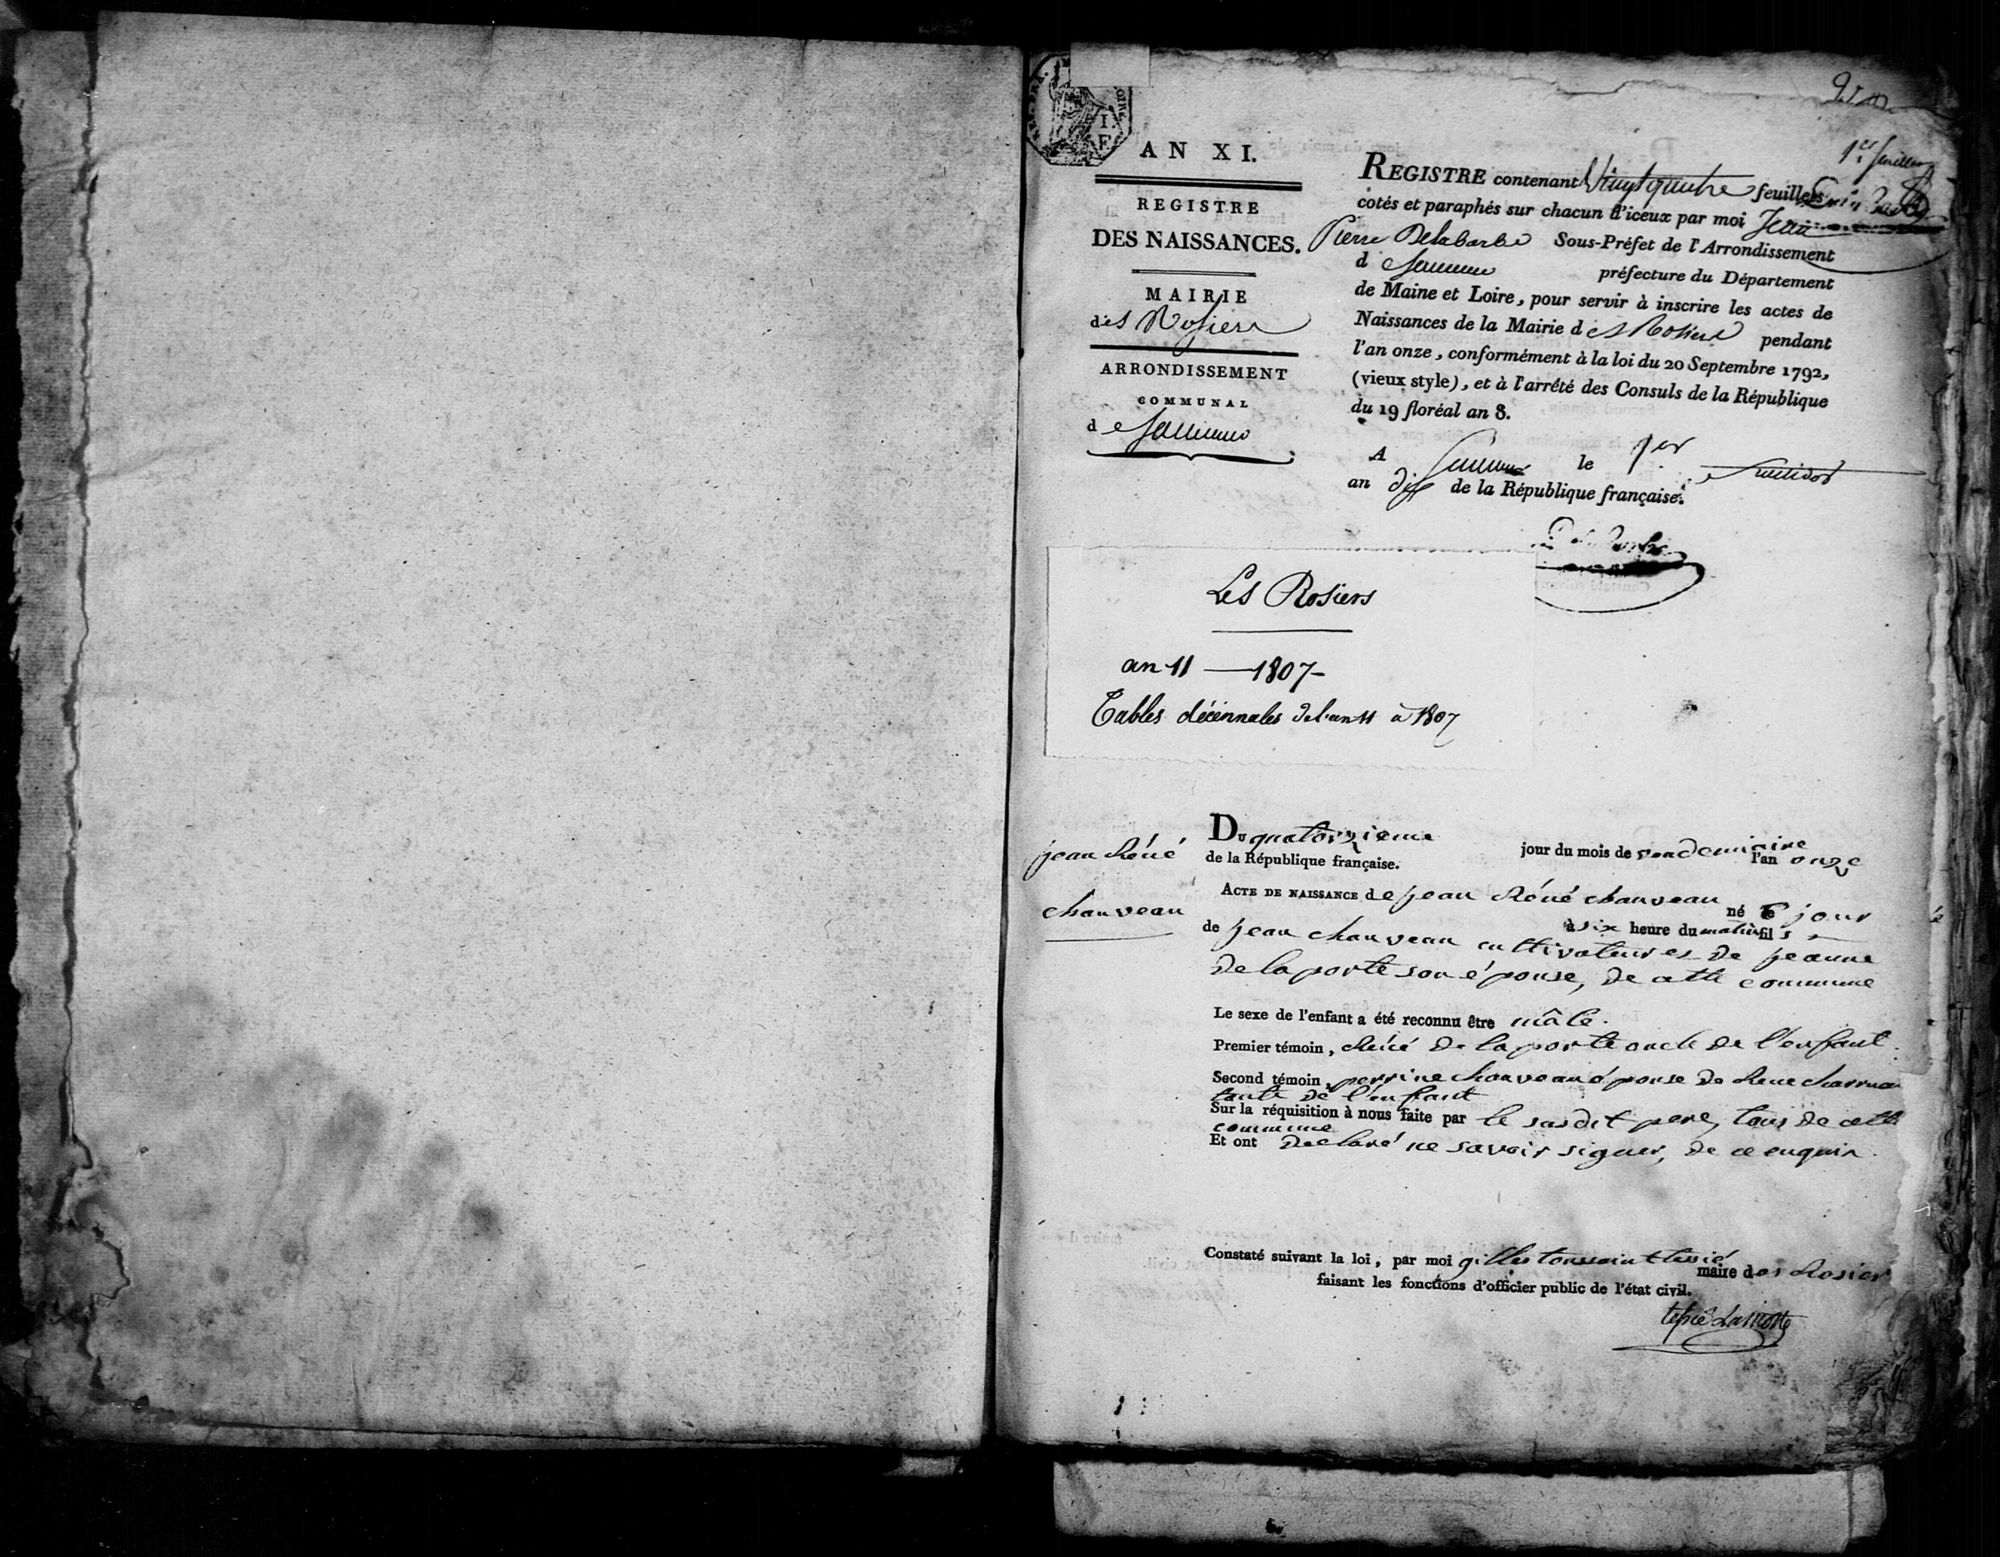 AN XI.
REGISTRE
DES NAISSANCES.
MAIRIE
des Rosiers
ARRONDISSEMENT
COMMUNAL
de Saumur
1er feuillet
REGISTRE contenant Vingt quatre feuillets
cotés et paraphés sur chacun d'iceux par moi Jean
Pierre Delabarbe Sous-Préfet de l'Arrondissement
de Saumur préfecture du Département
de Maine et Loire, pour servir à inscrire les actes de
Naissances de la Mairie des Rosiers pendant
l'an onze, conformément à la loi du 20 Septembre 1792,
(vieux style), et à l'arrêté des Consuls de la République
du 19 floréal an 8.
A Saumur le 1er
an dix de la République française.
Les Rosiers
an 11 — 1807
Tables décennales de l'an 11 à 1807
jean Réné
chauveau
Du quatorzieme jour du mois de vendemiaire l'an onze
de la République française.
ACTE DE NAISSANCE de jean Réné chauveau né ce jour
à six heure du matin fils
de jean chauveau cultivateur et de jeanne
de la porte son épouse, de cette commune
Le sexe de l'enfant a été reconnu être mâle.
Premier témoin, Réné de la porte oncle de l'enfant.
Second témoin, perrine chauveau épouse de Rene
tante de l'enfant
Sur la réquisition à nous faite par le susdit pere, tous de cette
commune
Et ont declaré ne savoir signer, de ce enquis.
Constaté suivant la loi, par moi gilles toussaint maire des Rosiers
faisant les fonctions d'officier public de l'état civil.